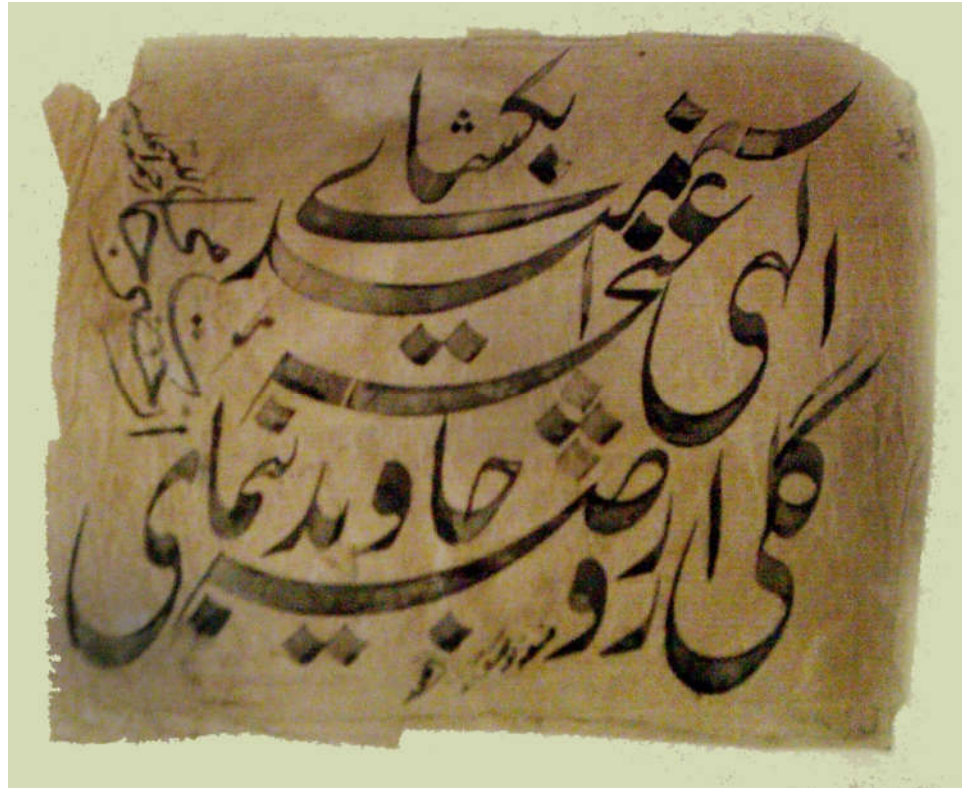 الهی غنچهٔ امید بکشای
گلی از روضهٔ جاوید بنمای